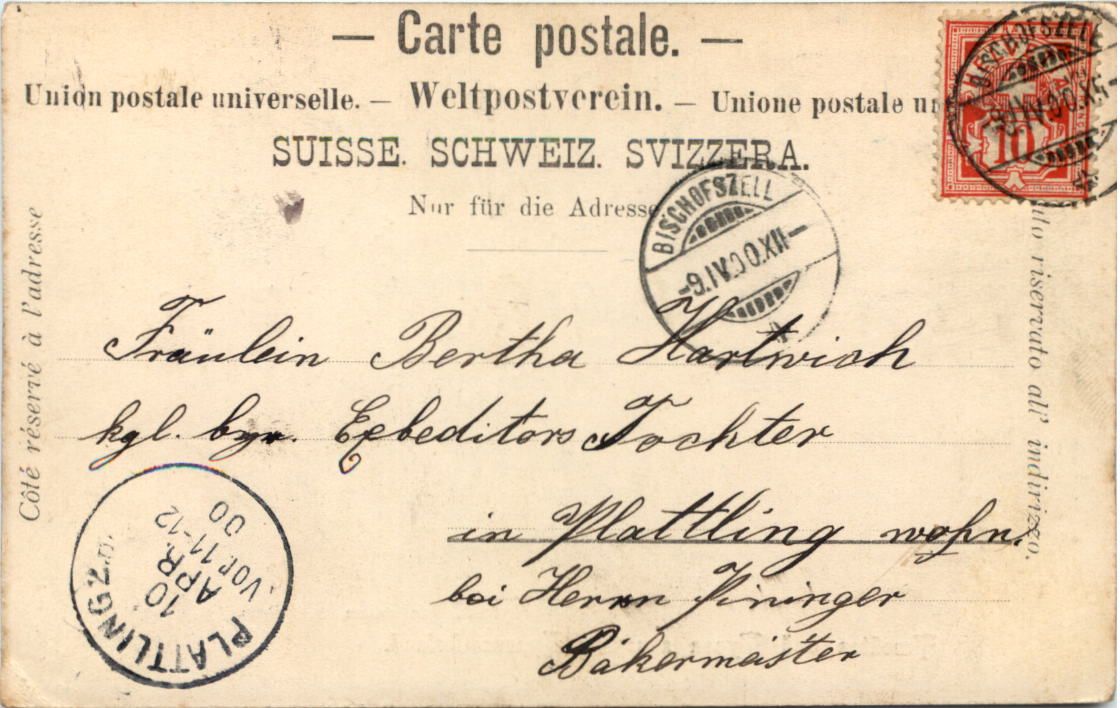 — Carte postale. —
Union postale universelle. — Weltpostverein. — Unione postale un
SUISSE. SCHWEIZ. SVIZZERA.
Nur für die Adresse
Côté réservé à l'adresse
riservato all' indirizzo.
BISCHOFSZELL
10
BISCHOFSZELL
-9.IV.00.XII-
Fräulein Bertha Hartwich
kgl. byr. Exbeditors Tochter
in Plattling wohn.
bei Herrn Pininger
Bäkermeister
PLATTLING 2.
10
APR.
VOR. 11-12
00